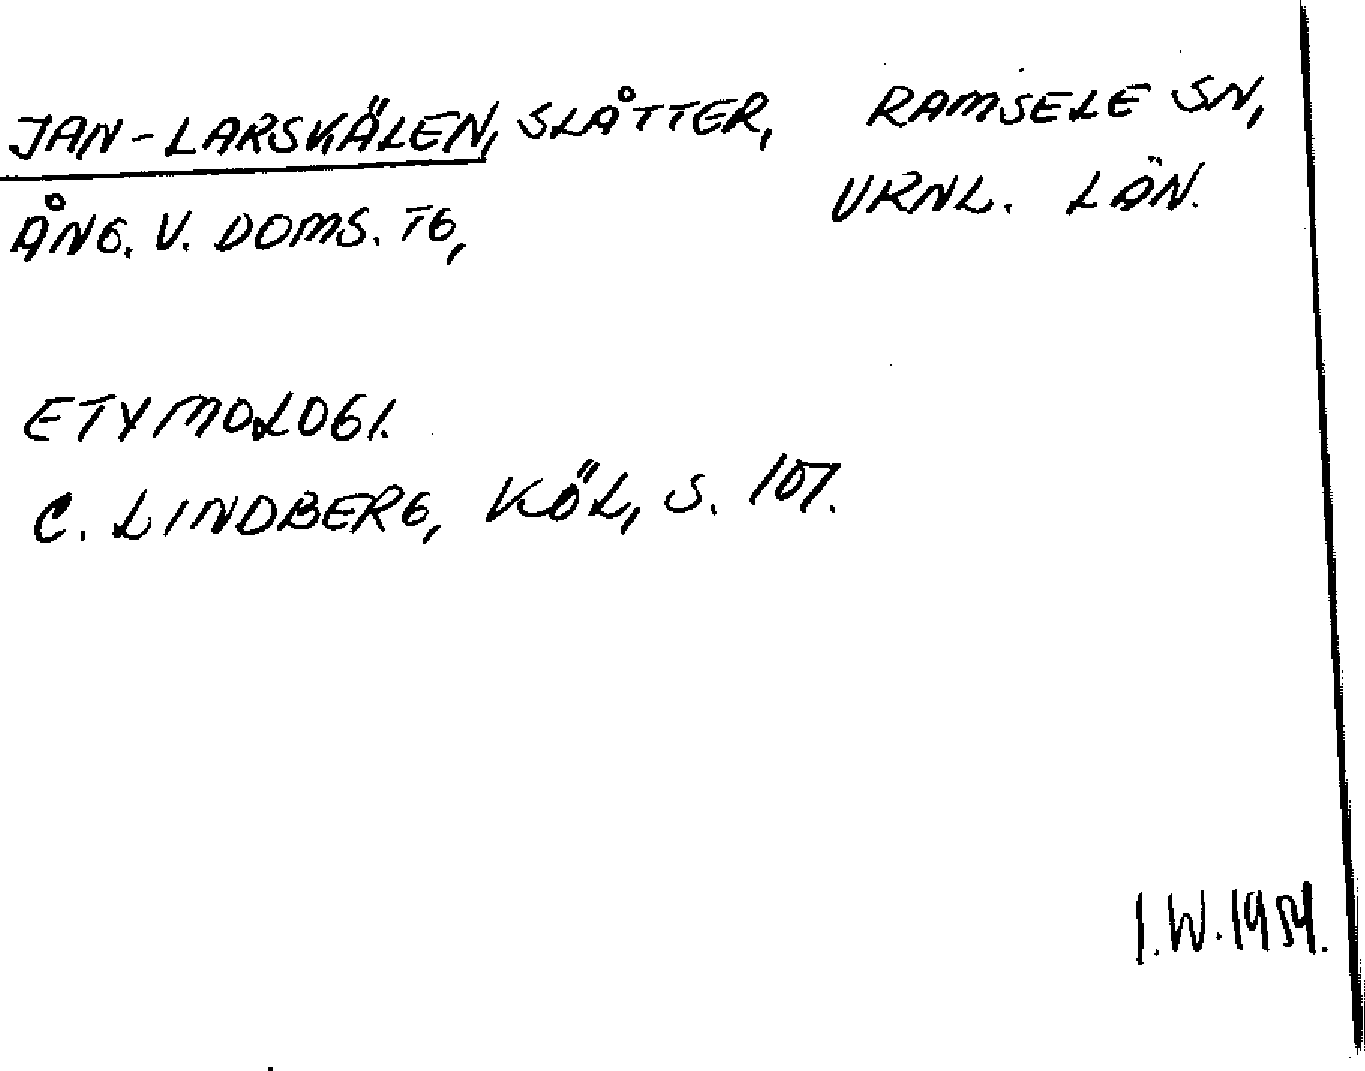 JAN-LARSKÄLEN, SLÅTTER, RAMSELE SN,
ÅNG. V. DOMS. TG, VRNL. LÄN.
ETYMOLOGI.
C. LINDBERG, KÖL, S. 107.
I.W. 1954.